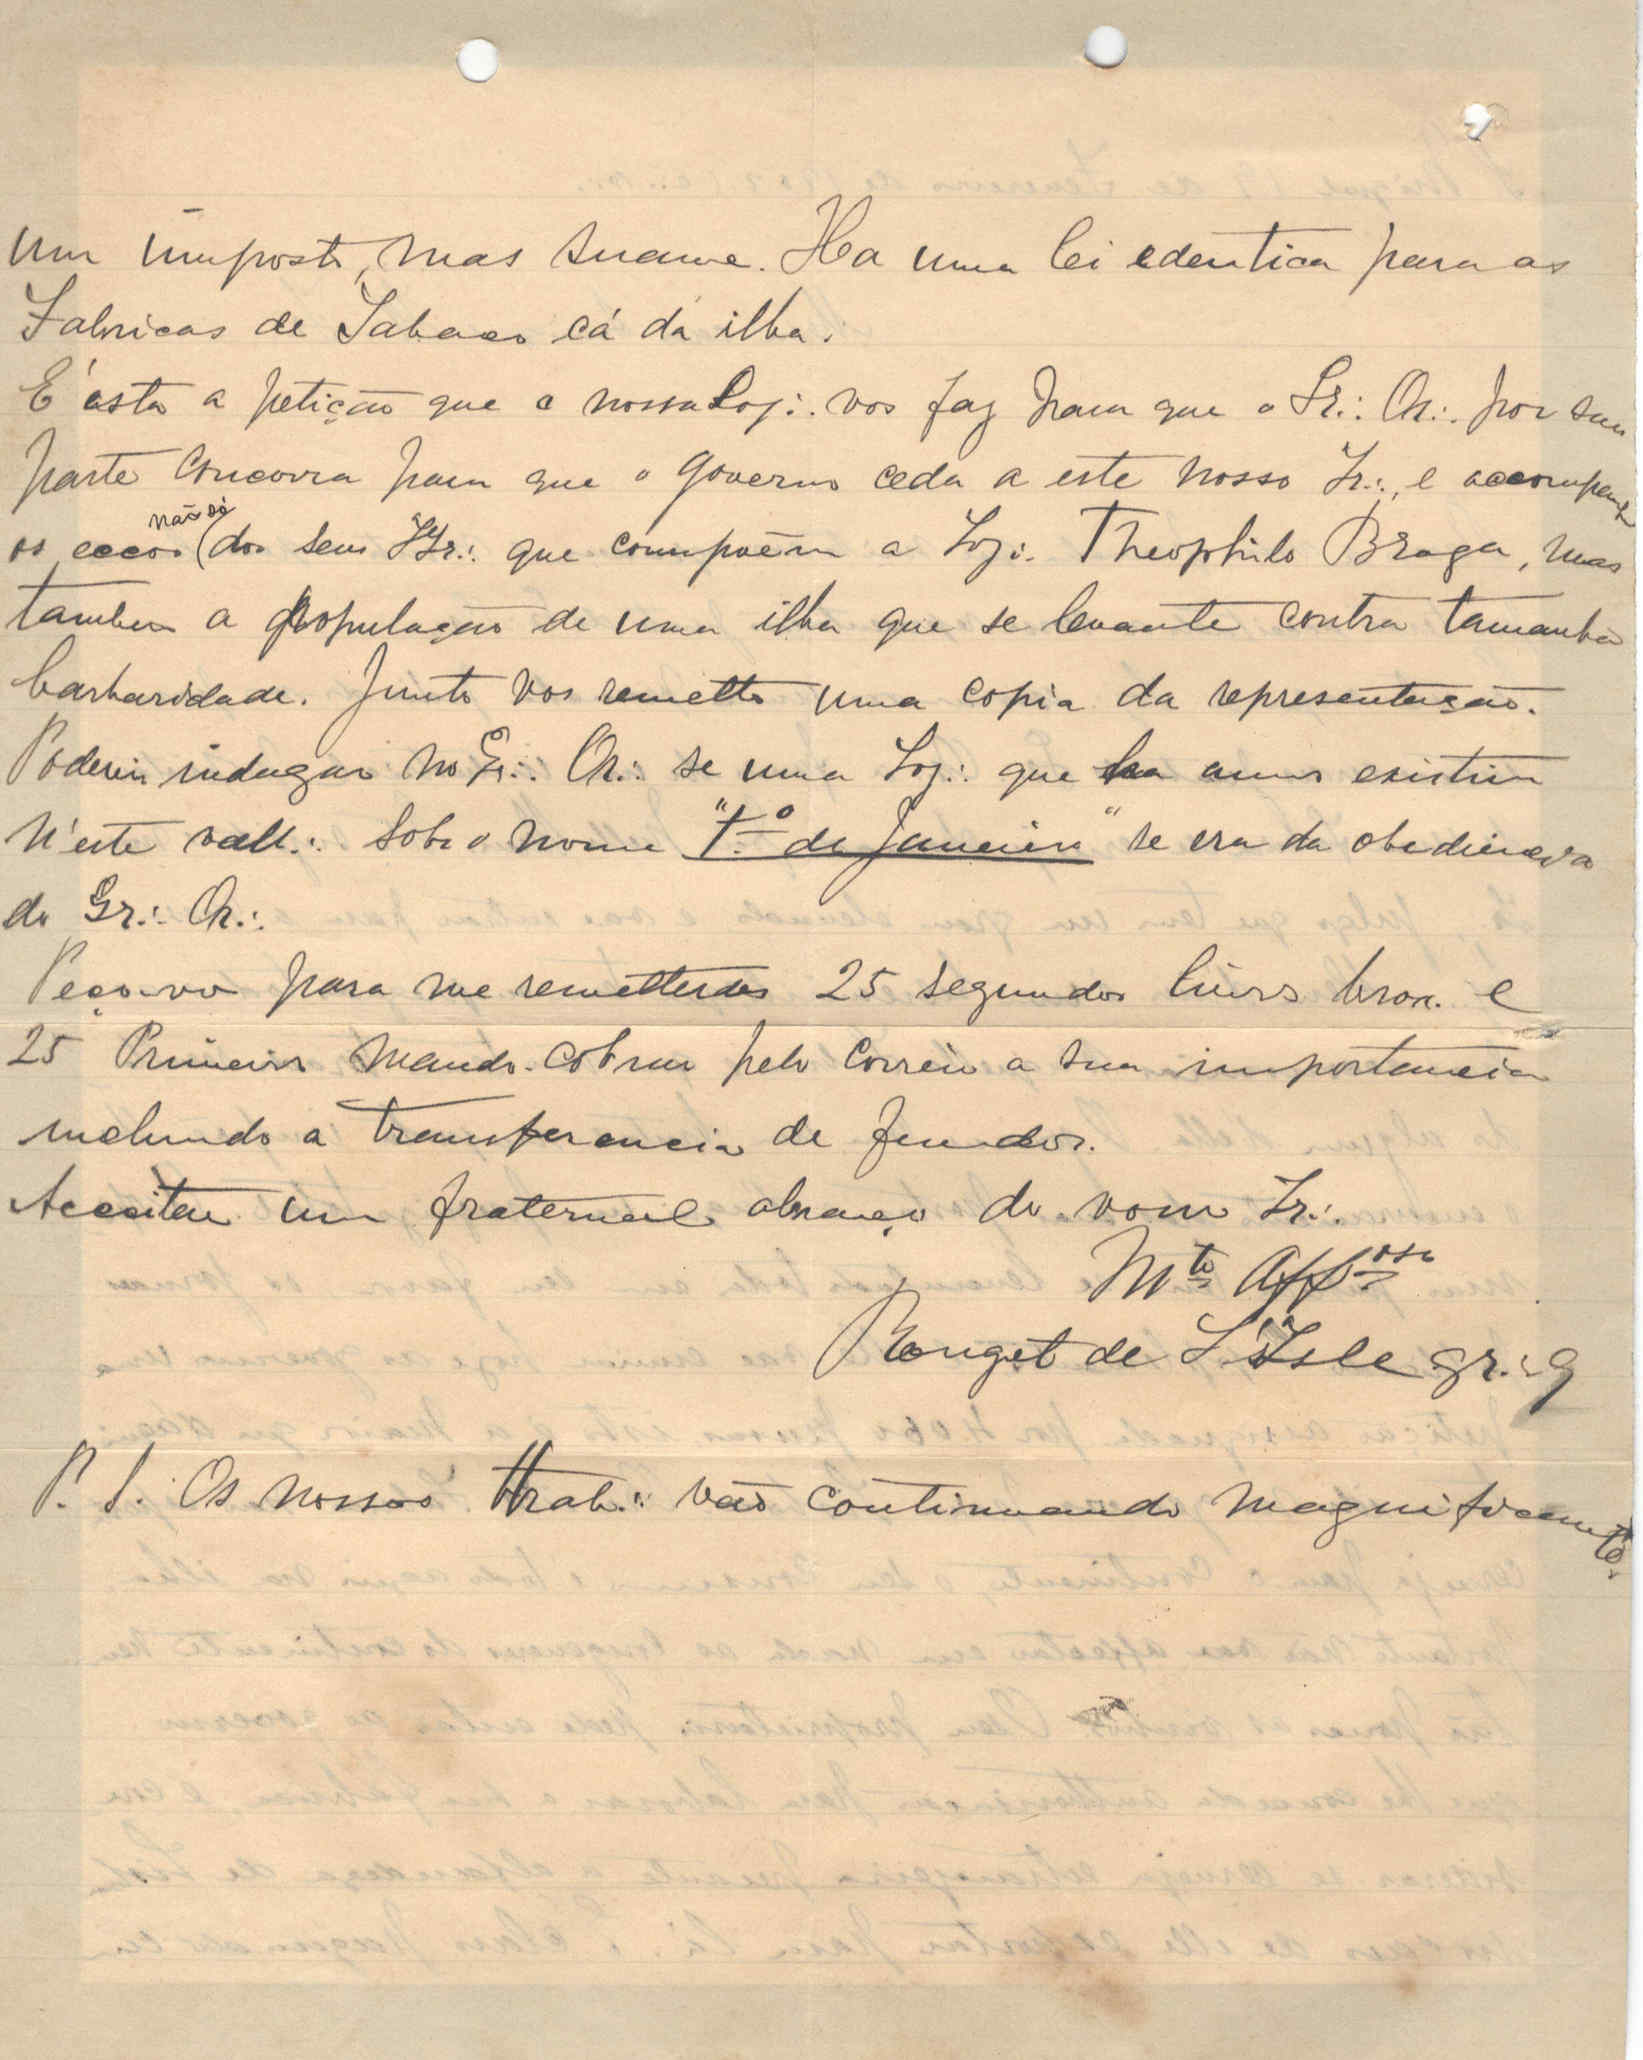 um imposto, mas suave. Ha uma lei edentica para as
Fabricas de Tabaco cá da ilha.
E' esta a petição que a nossa Loj∴ vos faz para que o Gr∴ Or∴ por sua
parte concorra para que o governo ceda a este nosso Ir∴, e acompanhe
os eccos (não só dos seus IIr∴ que compoêm a Loj∴ Theophilo Braga, mas
tambem a população de uma ilha que se levante contra tamanha
barbaridade. Junto vos remetto uma copia da representação.
Poderei indagar no Gr∴ Or∴ se uma Loj∴ que ha annos existiu
n'este vall∴ sob o nome "1.º de Janeiro" se era da obediencia
do Gr∴ Or∴
Peço-vos para me remetterdes 25 segundos livros brox. e
25 Primeiros mando-cobrar pelo correio a sua importancia
incluindo a transferencia de fundos.
Acceitae um fraternal abraço do vosso Ir∴
Mto Affoso
Rouget de L'Isle gr∴ 9
P. S. Os nossos ttrab∴ vão continuando magnificamente.